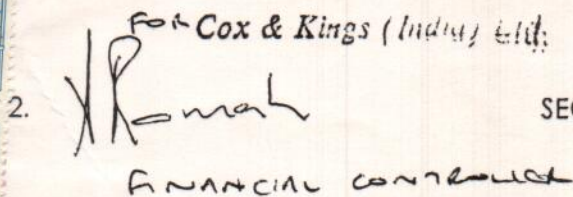 FOR Cox & Kings (India) Ltd.
2.
SEC
FINANCIAL CONTROLLER